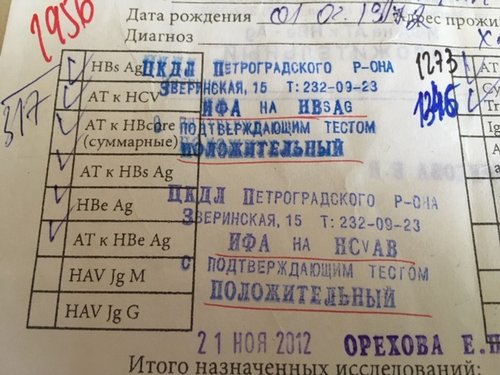 1956
Дата рождения 01 02 1978 Адрес прожи
Диагноз
317
HBs Ag
АТ к HCV
АТ к HBcore
(суммарные)
АТ к HBs Ag
HBe Ag
АТ к HBe Ag
HAV Jg M
HAV Jg G
ЦКДЛ ПЕТРОГРАДСКОГО Р-ОНА
ЗВЕРИНСКАЯ, 15 Т: 232-09-23
ИФА НА HBSAG
С ПОДТВЕРЖДАЮЩИМ ТЕСТОМ
ПОЛОЖИТЕЛЬНЫЙ
1273
1346
ЦКДЛ ПЕТРОГРАДСКОГО Р-ОНА
ЗВЕРИНСКАЯ, 15 Т: 232-09-23
ИФА НА HCVAB
С ПОДТВЕРЖДАЮЩИМ ТЕСТОМ
ПОЛОЖИТЕЛЬНЫЙ
21 НОЯ 2012 ОРЕХОВА Е.
Итого назначенных исследований: